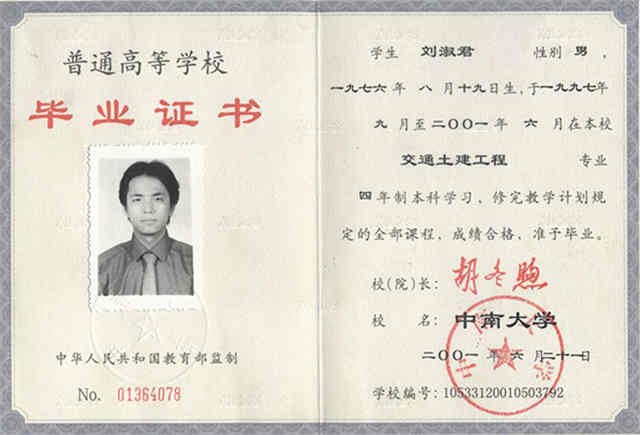 普通高等学校
毕业证书
中华人民共和国教育部监制
No. 01364078
学生 刘淑君 性别 男,
一九七六年 八 月十九日生,于一九九七年
九 月至二〇〇一年 六 月在本校
交通土建工程 专业
四 年制本科学习,修完教学计划规
定的全部课程,成绩合格,准予毕业。
校(院)长: 胡冬煦
校 名: 中南大学
二〇〇一 年 六 月二十一日
学校编号: 10533120010503792